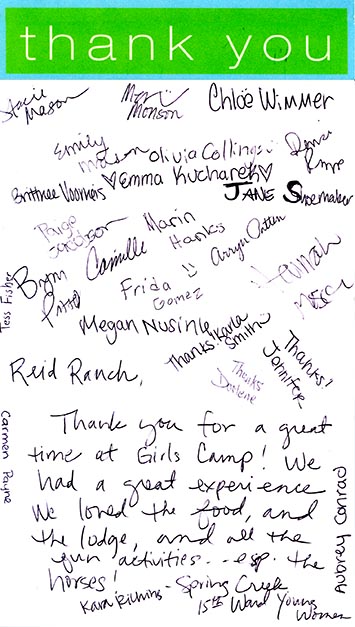 thank you
Stacie Mason
Monson
Chlöe Wimmer
Emily Mason
Olivia Collings
Denise
Brittnee Voorhies
♡Emma Kucharek♡
Jane Shoemaker
Paige Jacobson
Marin Hanks
Camille
Tess Fisher
Frida Gomez
Hannah
Megan Nusink
Thanks! Karla Smith
Thanks! Jennifer
Thanks Darlene
Reid Ranch,
Carmen Payne
Thank you for a great
time at Girls Camp! We
had a great experience
We loved the food, and
the lodge, and all the
fun activities... esp. the
horses!
Kara Richins - Spring Creek
15th Ward Young
Women
Aubrey Conrad